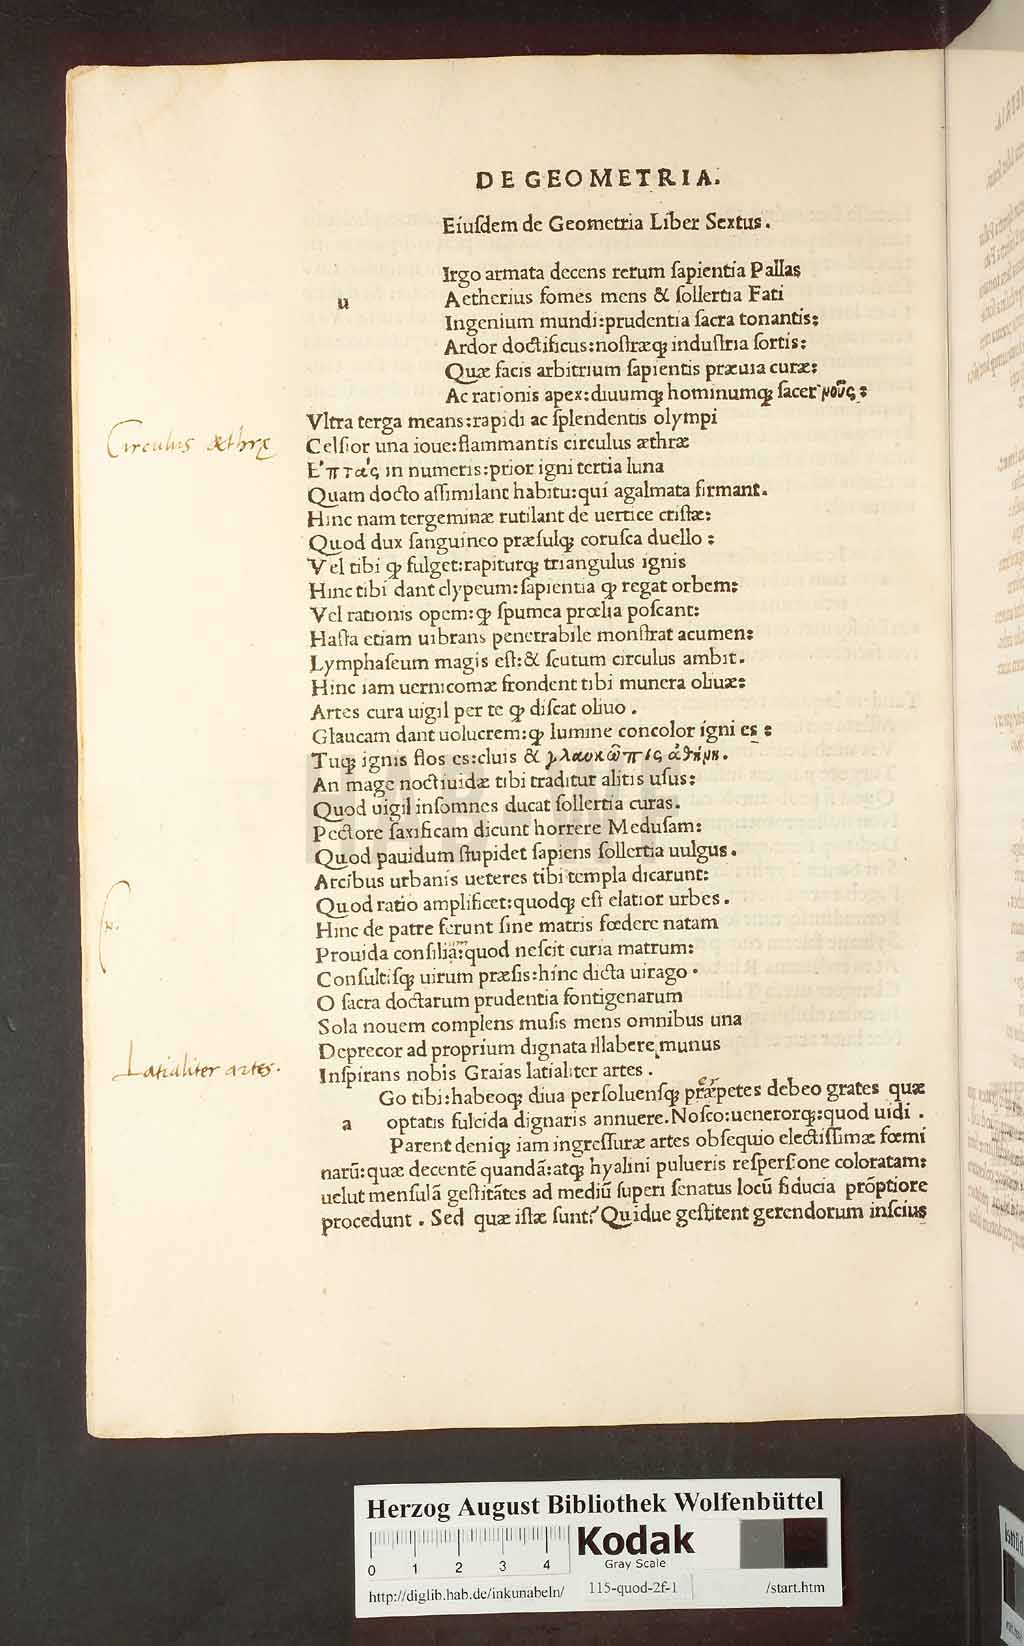 DE GEOMETRIA.
Eiusdem de Geometria Liber Sextus.
u Irgo armata decens rerum sapientia Pallas
Aetherius fomes mens & sollertia Fati
Ingenium mundi:prudentia sacra tonantis:
Ardor doctificus:nostræq; industria sortis:
Quæ facis arbitrium sapientis præuia curæ:
Ac rationis apex:diuumq; hominumq; sacer νοῦς:
Vltra terga means:rapidi ac splendentis olympi
Circulus æthrę
Celsior una ioue:flammantis circulus æthræ
Ε'πτὰς in numeris:prior igni tertia luna
Quam docto assimilant habitu:qui agalmata firmant.
Hinc nam tergeminæ rutilant de uertice cristæ:
Quod dux sanguineo præsulq; corusca duello:
Vel tibi ꝙ fulget:rapiturq; triangulus ignis
Hinc tibi dant clypeum:sapientia ꝙ regat orbem:
Vel rationis opem:ꝙ spumea prœlia poscant:
Hasta etiam uibrans penetrabile monstrat acumen:
Lymphaseum magis est:& scutum circulus ambit.
Hinc iam uernicomæ frondent tibi munera oliuæ:
Artes cura uigil per te ꝙ discat oliuo.
Glaucam dant uolucrem:ꝙ lumine concolor igni es:
Tuq; ignis flos es:cluis & γλαυκῶπις ἀθήνη.
An mage noctiuidæ tibi traditur alitis usus:
Quod uigil insomnes ducat sollertia curas.
Pectore saxificam dicunt horrere Medusam:
Quod pauidum stupidet sapiens sollertia uulgus.
Arcibus urbanis ueteres tibi templa dicarunt:
Quod ratio amplificet:quodq; est elatior urbes.
Hinc de patre ferunt sine matris fœdere natam
Prouida consilia:quod nescit curia matrum:
Consultisq; uirum præsis:hinc dicta uirago.
O sacra doctarum prudentia fontigenarum
Sola nouem complens musis mens omnibus una
Deprecor ad proprium dignata illabere munus
Latialiter artes.
Inspirans nobis Graias latialiter artes.
a Go tibi:habeoq; diua persoluensq; præpetes debeo grates quæ
optatis fulcida dignaris annuere.Nosco:uenerorq;:quod uidi.
Parent deniq; iam ingressuræ artes obsequio electissimæ fœmi
narũ:quæ decentẽ quandã:atq; hyalini pulueris respersione coloratam:
uelut mensulã gestitãtes ad mediũ superi senatus locũ fiducia prõptiore
procedunt. Sed quæ istæ sunt? Quidue gestitent gerendorum inscius
Herzog August Bibliothek Wolfenbüttel
0 1 2 3 4
Kodak
Gray Scale
http://diglib.hab.de/inkunabeln/ 115-quod-2f-1 /start.htm
HAB-WF